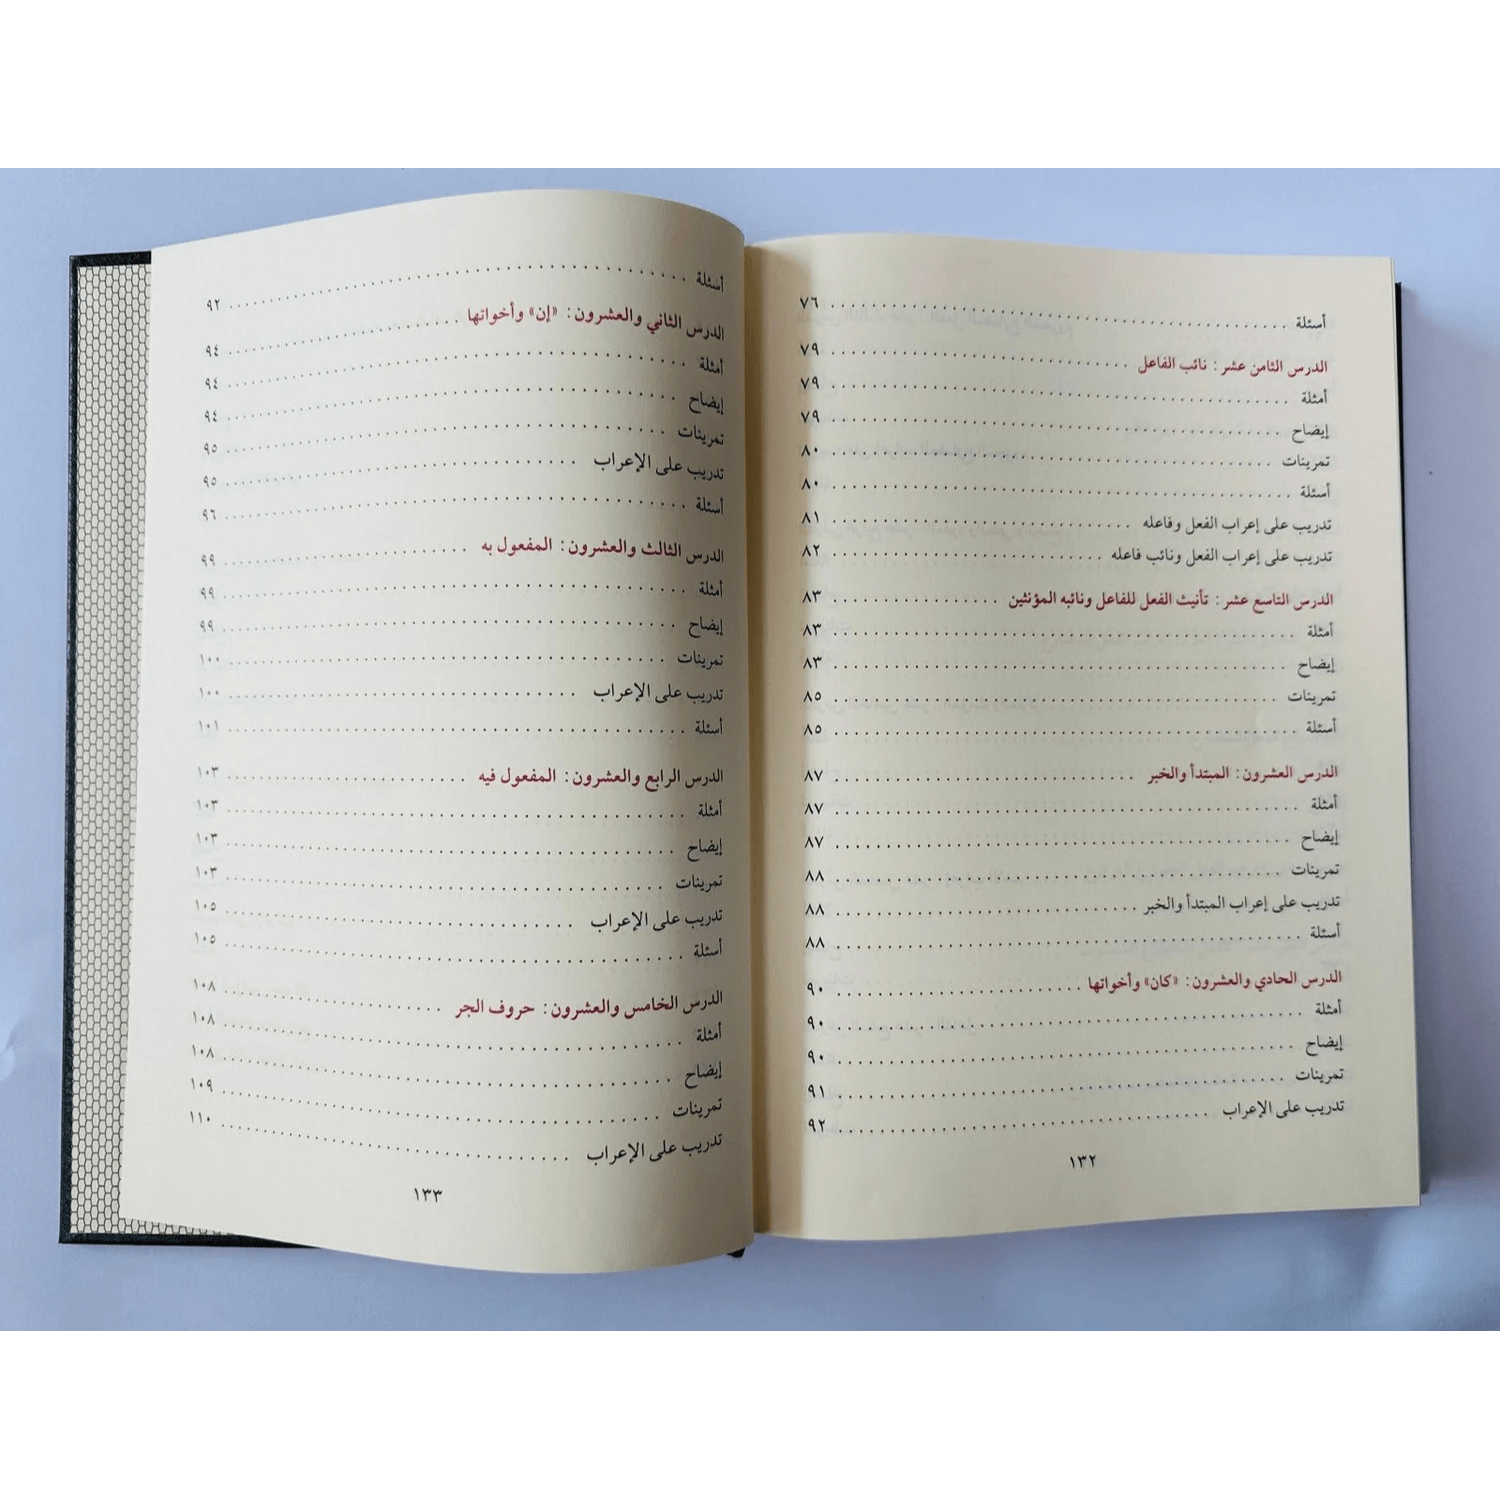 أسئلة ........ ٧٦
الدرس الثامن عشر: نائب الفاعل ........ ٧٩
أمثلة ........ ٧٩
إيضاح ........ ٧٩
تمرينات ........ ٨٠
أسئلة ........ ٨٠
تدريب على إعراب الفعل وفاعله ........ ٨١
تدريب على إعراب الفعل ونائب فاعله ........ ٨٢
الدرس التاسع عشر: تأنيث الفعل للفاعل ونائبه المؤنثين ........ ٨٣
أمثلة ........ ٨٣
إيضاح ........ ٨٣
تمرينات ........ ٨٥
أسئلة ........ ٨٥
الدرس العشرون: المبتدأ والخبر ........ ٨٧
أمثلة ........ ٨٧
إيضاح ........ ٨٧
تمرينات ........ ٨٨
تدريب على إعراب المبتدأ والخبر ........ ٨٨
أسئلة ........ ٨٨
الدرس الحادي والعشرون: «كان» وأخواتها ........ ٩٠
أمثلة ........ ٩٠
إيضاح ........ ٩٠
تمرينات ........ ٩١
تدريب على الإعراب ........ ٩٢
١٣٢
أسئلة ........ ٩٢
الدرس الثاني والعشرون: «إن» وأخواتها ........ ٩٤
أمثلة ........ ٩٤
إيضاح ........ ٩٤
تمرينات ........ ٩٥
تدريب على الإعراب ........ ٩٥
أسئلة ........ ٩٦
الدرس الثالث والعشرون: المفعول به ........ ٩٩
أمثلة ........ ٩٩
إيضاح ........ ٩٩
تمرينات ........ ١٠٠
تدريب على الإعراب ........ ١٠٠
أسئلة ........ ١٠١
الدرس الرابع والعشرون: المفعول فيه ........ ١٠٣
أمثلة ........ ١٠٣
إيضاح ........ ١٠٣
تمرينات ........ ١٠٣
تدريب على الإعراب ........ ١٠٥
أسئلة ........ ١٠٥
الدرس الخامس والعشرون: حروف الجر ........ ١٠٨
أمثلة ........ ١٠٨
إيضاح ........ ١٠٨
تمرينات ........ ١٠٩
تدريب على الإعراب ........ ١١٠
١٣٣